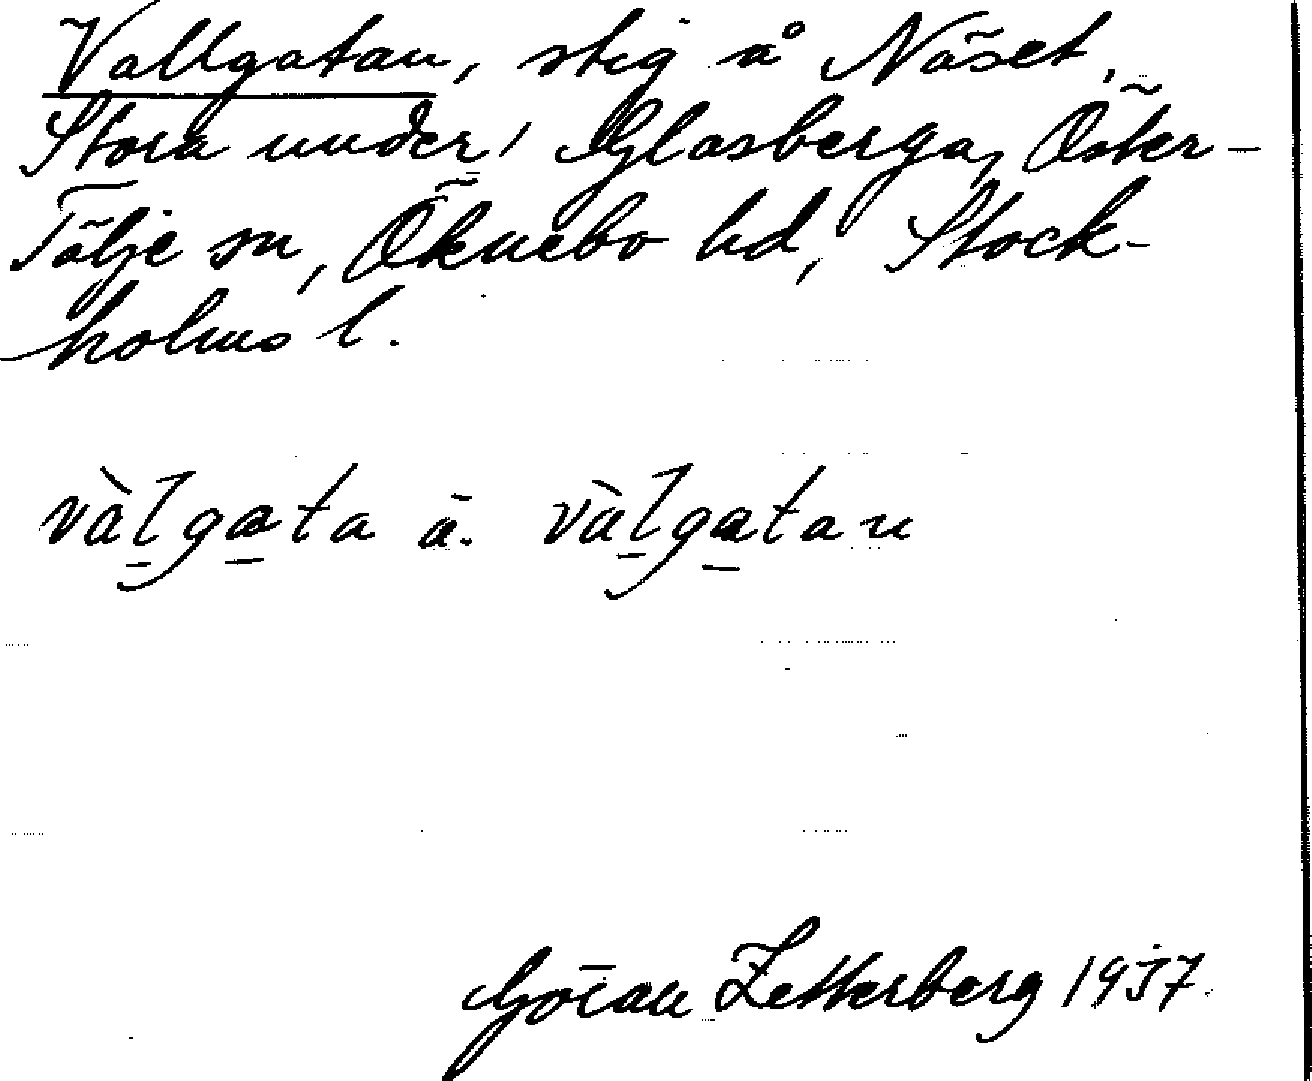 Vallgatan, stig å Näset,
Stora under Glasberga, Öster-
Tälje sn, Öknebo hd, Stock-
holms l.
vàl̠ga̠ta ä. vàl̠ga̠tan
Göran Zetterberg 1937